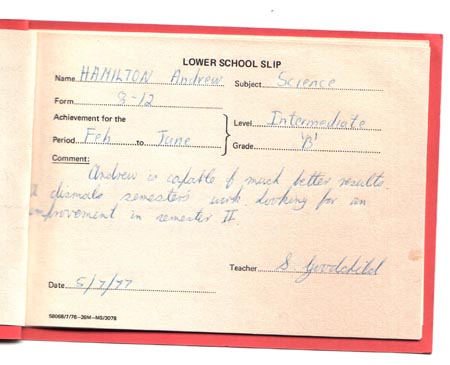 LOWER SCHOOL SLIP
Name HAMILTON Andrew Subject Science
Form 8-12
Achievement for the Level Intermediate
Period Feb to June Grade 'B'
Comment:
Andrew is capable of much better results.
A dismals semester's work. Looking for an
improvement in semester II.
Teacher S Goodchild
Date 5/7/77
58068/7/76-29M-MS/3078